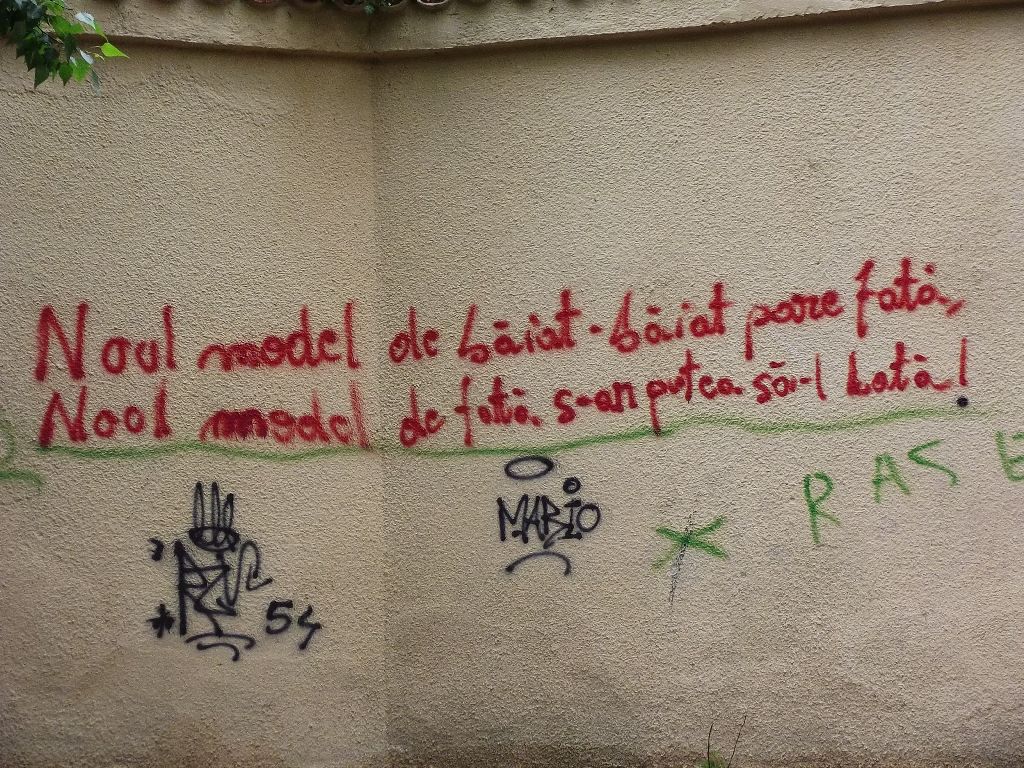 Noul model de băiat-băiat pare fată,
Noul model de fată s-an putea să-l bată!
MARIO
RASE
54